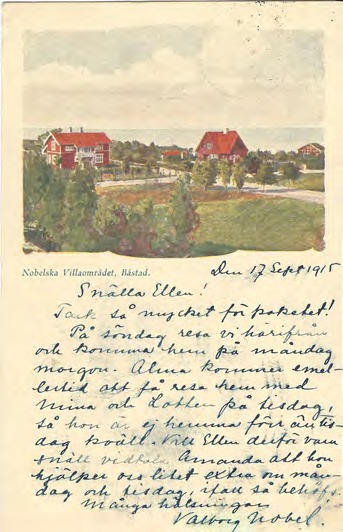 Nobelska Villaområdet, Båstad.
Den 17 Sept 1915
Snälla Ellen!
Tack så mycket för paketet!
På söndag resa vi härifrån
och komma hem på måndag
morgon. Alma kommer emel-
lertid att få resa hem med
Nina och Lotten på tisdag,
så hon är ej hemma förr än tis-
dag kväll. Vill Ellen derför vara
snäll Amanda att hon
hjälper oss litet extra om mån-
dag och tisdag, ifall så behöfs.
Många helsningar
Valborg Nobel.